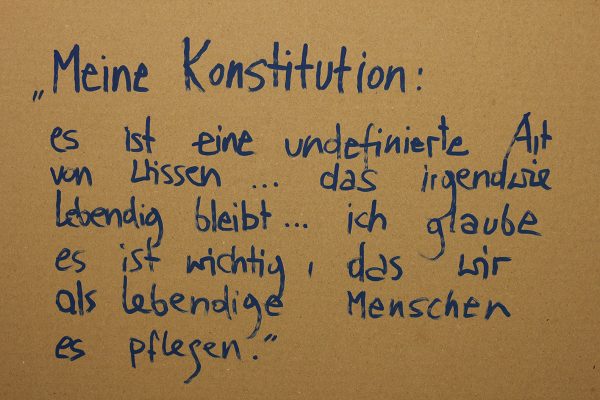 „Meine Konstitution:
es ist eine undefinierte Art
von Wissen ... das irgendwie
lebendig bleibt ... ich glaube
es ist wichtig, das wir
als lebendige Menschen
es pflegen.“